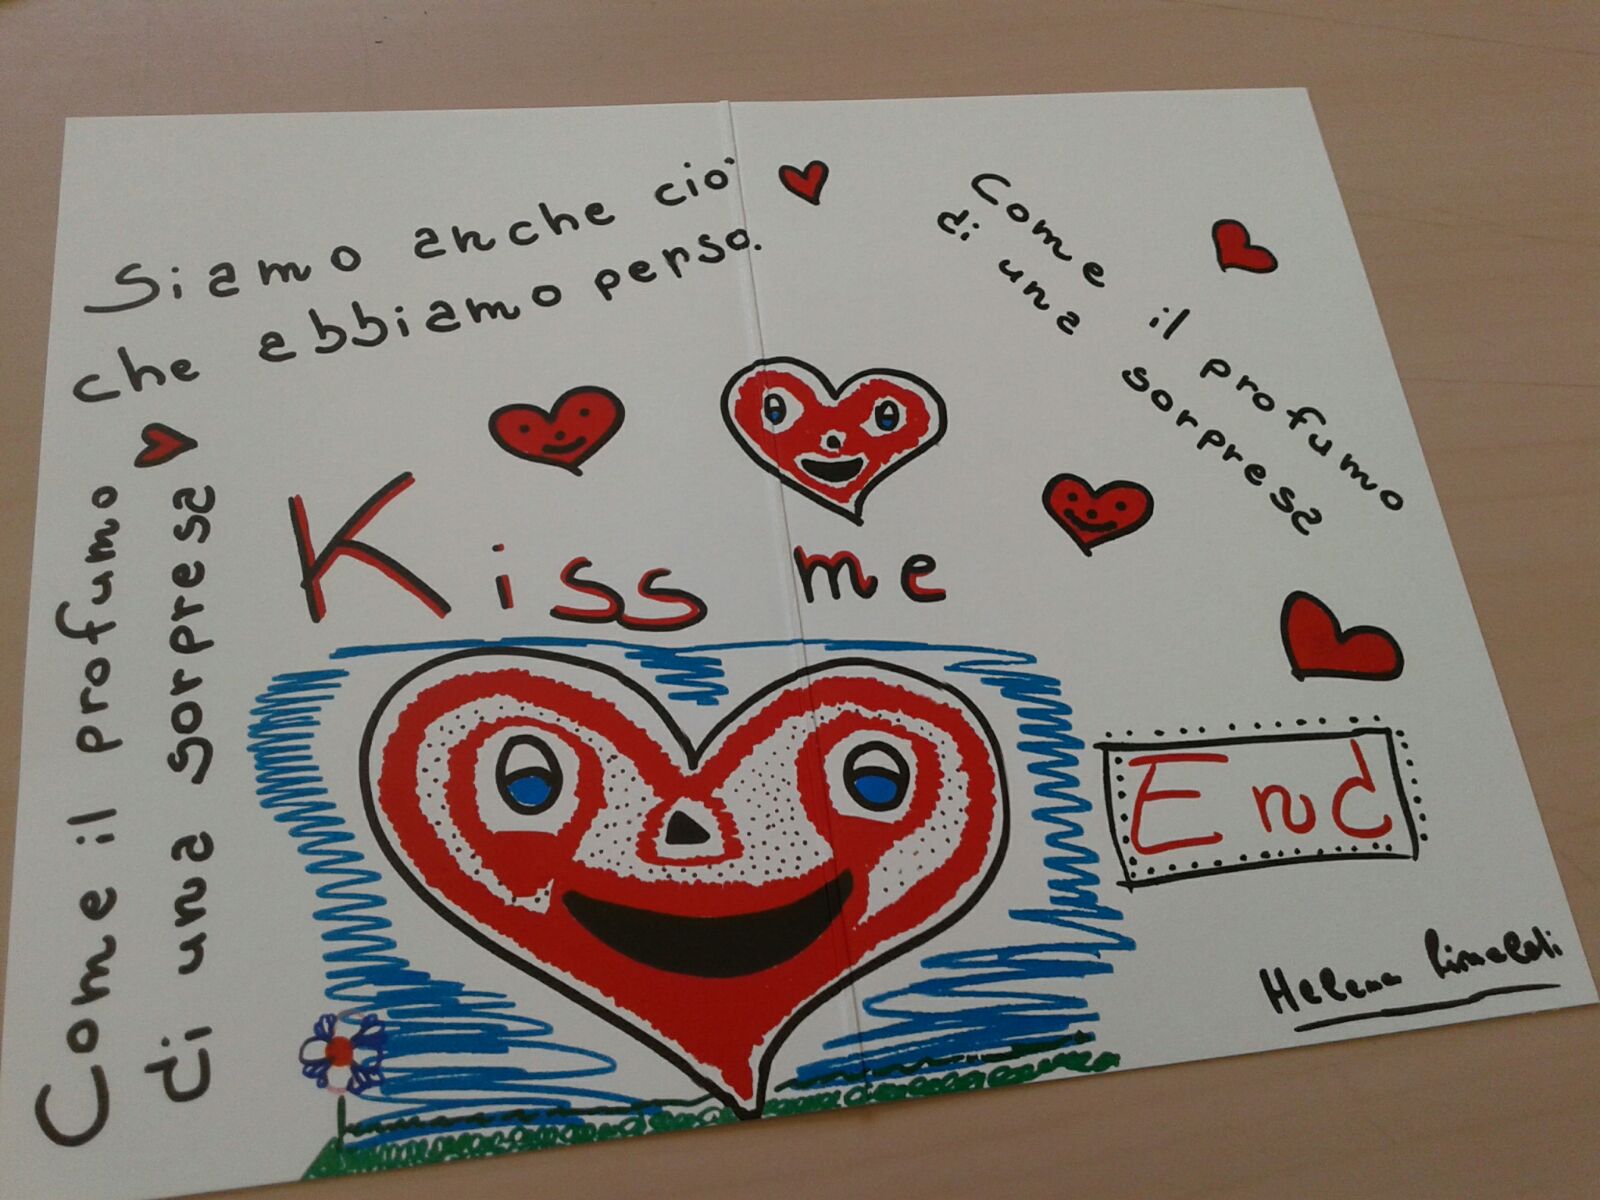 Siamo anche ciò
che abbiamo perso.
Come il profumo
di una sorpresa
Come il profumo
di una sorpresa
Kiss me
End
Helena Rinaldi